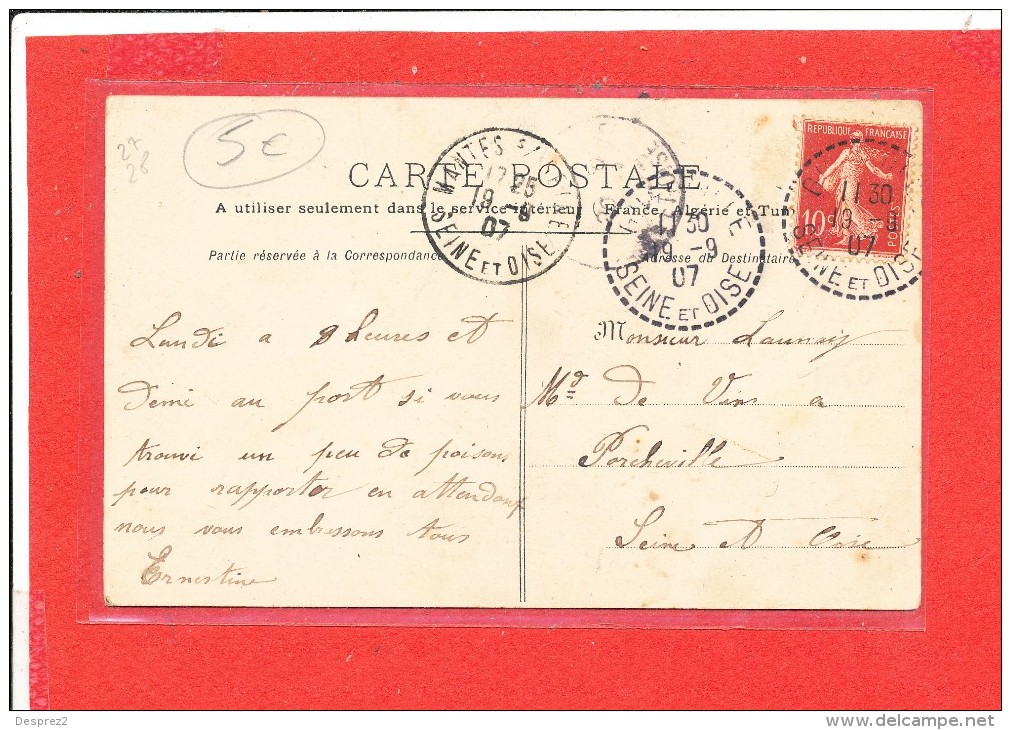 27
28
5€
CARTE POSTALE
A utiliser seulement dans le service intérieur France, Algérie et Tun
Partie réservée à la Correspondance
Adresse du Destinataire
MANTES S/
17 25
19 - 9
07
SEINE ET OISE
11 30
19 - 9
07
SEINE ET OISE
REPUBLIQUE FRANÇAISE
10c
POSTES
11 30
19 - 9
07
SEINE ET OISE
Lundi a 8 heures et
demi au port si vous
trouvi un peu de poisons
pour rapporter en attendant
nous vous embrissons tous
Ernestine
Monsieur Launay
Md De Vins a
Porcheville
Seine et Oise
Desprez2
delcampe.net